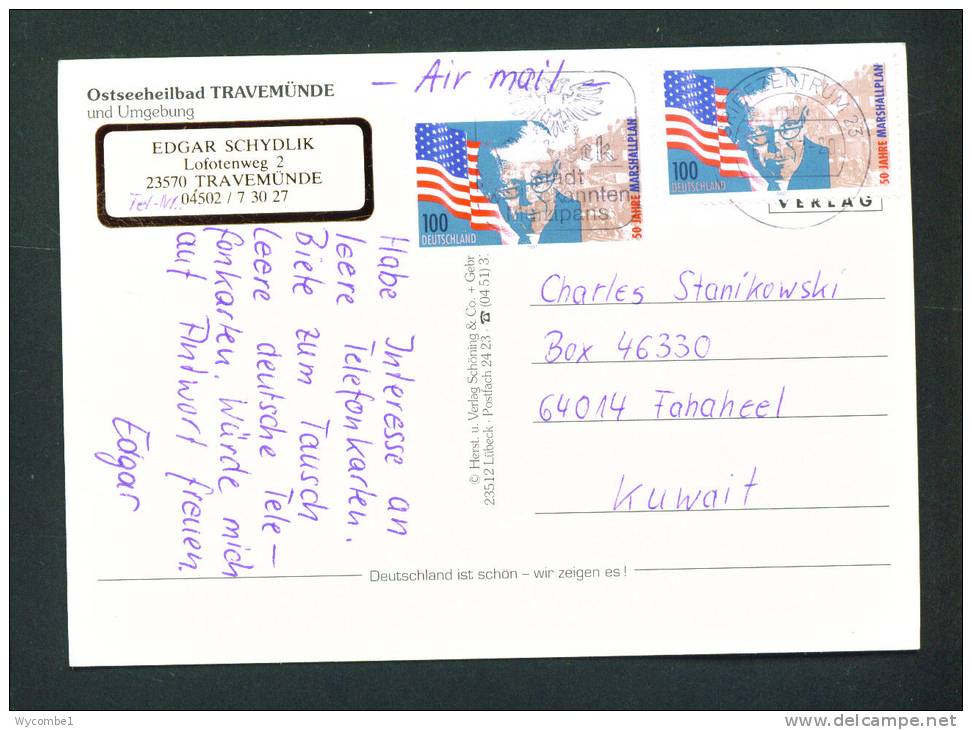 Ostseeheilbad TRAVEMÜNDE
und Umgebung
EDGAR SCHYDLIK
Lofotenweg 2
23570 TRAVEMÜNDE
Tel-Nr. 04502 / 7 30 27
- Air mail -
100
DEUTSCHLAND
50 JAHRE MARSHALLPLAN
Stadt
Marzipans
100
DEUTSCHLAND
50 JAHRE MARSHALLPLAN
23
VERLAG
Habe Interesse an
leere Telefonkarten.
Biete zum Tausch
leere deutsche Tele-
fonkarten. Würde mich
auf Antwort freuen.
Edgar
© Herst. u. Verlag Schöning & Co. + Gebr
23512 Lübeck · Postfach 24 23 · ☎ (04 51) 3
Charles Stanikowski
Box 46330
64014 Fahaheel
Kuwait
Deutschland ist schön – wir zeigen es!
Wycombe1
delcampe.net